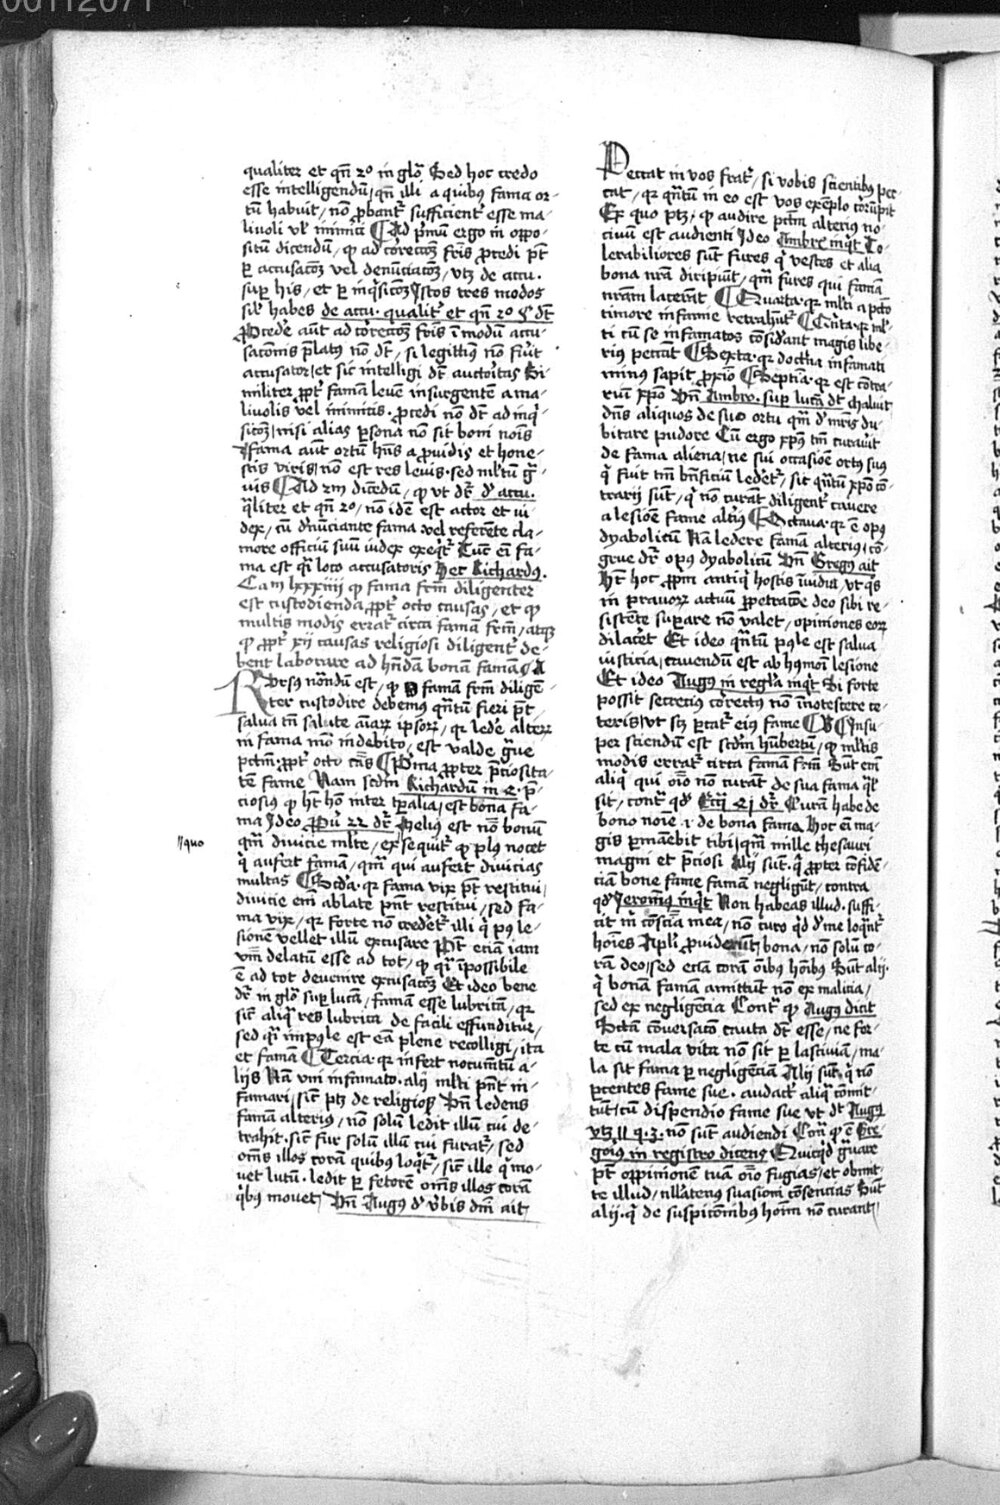 00112071
qualiter et qn̄ 2º in glō Sed hoc credo
esse intelligendū / qn̄ illi a quibꝯ fama or-
tū habuit / nō ꝓbant᷑ sufficient᷑ esse ma-
liuoli vl᷑ inimici ¶ Ad pͥmum ergo in oppo-
situ dicendū / ꝙ ad cōreccōꝫ frīs ꝓcedi pt̄
ꝑ accusacōꝫ vel denūciacōꝫ / vtꝫ de accu.
suꝑ his / et ꝑ inqͥsicōꝫ Istos tres modos
sil᷑ habes de accu. qualit᷑ et qn̄ 2º
Procede aūt ad cōreccōꝫ frīs ī modū accu-
sacōnis p̄latꝯ nō dꝫ / si legittimꝯ nō fuīt
accusator / et sic intelligi dꝫ auctōitas Si-
militer ꝓpt᷑ famā leuē insurgentē a ma-
liuolis vel inimicis. ꝓcedi nō dꝫ ad inqͥ-
sicōꝫ / nisi alias ꝑsona nō sit boni nōis
Fama aūt ortū hn̄s a ꝓuidis et hone-
stis viris / nō est res leuis. sed ml᷑tū gͣ-
uis ¶ Ad 2m dicēdū / ꝙ vt dꝫ de accu.
qͣliter et qn̄ 2º / nō idē est actor et iu-
dex / cū denūciante fama vel referēte cla-
more officiū suū iudex exeqͥt᷑ Tūc em̄ fa-
ma est qͣsi loco accusatoris Hec Richardꝯ.
Cam lxxxiiii ꝙ fama frm̄ diligenter
est custodienda ꝓpt᷑ octo causas / et ꝙ
multis modis errat᷑ circa famā frm̄ / atqꝫ
ꝙ ꝓpt᷑ xii causas religiosi diligent᷑ de-
bent laborare ad hn̄dā bonā famā A
Rursꝯ nōndū est / ꝙ famā frm̄ diligē-
ter custodire debemꝯ qn̄tū fieri pt̄
salua tn̄ salute aīaꝝ ipsoꝝ / qꝛ ledē alteꝝ
in fama mō indebito / est valde gͣue
pctm̄. ꝓpt᷑ octo cās ¶ Pͥma ꝓpter p̄ciosita-
tē fame Nam scd̄m Richardū in 4. p̄-
ciosiꝯ ꝙ hꝫ hō inter tꝑalia / est bona fa-
ma Ideo Prou̇ 22 dꝫ Meliꝯ est nōe bonū
qͣm diuicie ml᷑te / ex quo seqͥt᷑ ꝙ plꝯ nocet
qͥ aufert famā / qͣm qui aufert diuicias
multas ¶ Scd̄a. qꝛ fama vix pt̄ restitui /
diuicie em̄ ablate pn̄t restitui / sed fa-
ma vix / qꝛ forte nō credet᷑ illi qͥ pꝯ le-
sionē vellet illū excusare Pōt eciā iam
vnū delatū esse ad tot / ꝙ qͣsi īpossibile
ē ad tot deuenire excusacōꝫ Et ideo bene
dꝫ in glō suꝑ lucā / famā esse lubricā / qꝛ
sic̄ aliqͣ res lubrica de facili effunditur /
sed qͣsi impꝯle est eā plene recolligi / ita
et famā ¶ Tercia. qꝛ infert nocumētū a-
liis Nā vni infamato. alij ml᷑ti pn̄t in-
famari / sic̄ ptꝫ de religiosꝭ Vn̄ ledens
famā alterius / nō solū ledit illū cui de-
trahit. sic̄ fur solū illū cui furat᷑ / sed
om̄s illos corā quibus loqͥt᷑ / sic̄ ille qͥ mo-
uet lutū. ledit ꝑ fetorē om̄s illos corā
qͥbꝯ mouet / Vn̄ Augꝯ de ṽbis dm̄ ait
ıı quo
Peccat in vos frat᷑ / si vobis scientibꝯ pec-
cat / qꝛ qn̄tū in eo est vos exēplo cōrūpit
Ex quo ptꝫ / ꝙ audire pctm̄ alterius no-
ciuū est audienti Ideo Ambrꝯ inqͥt To-
lerabiliores sūt fures qͥ vestes et alia
bona nrā diripiūt / qͣm fures qui famā
nrām lacerāt ¶ Quarta. qꝛ ml᷑ti a pctō
timore infamie retrahūt᷑ ¶ Qͥnta. qꝛ ml᷑-
ti cū se infamatos cōsidāt magis libe-
rius peccāt ¶ Sexta. qꝛ doctͥna infamati
minus sapit ꝓxīo ¶ Septīa. qꝛ est cōtra-
riū xp̄o Vn̄ Ambro. suꝑ lucā dꝫ Maluit
dn̄s aliquos de suo ortu qͣm de mr̄is du-
bitare pudore Cū ergo xp̄s tm̄ curauīt
de fama aliena / ne sui occasiōe ortꝯ suꝯ
qͥ fuit tm̄ bn̄ficiū ledēt᷑ / sic qn̄tū xp̄o cō-
trarij sūt / qͥ nō curāt diligent᷑ cauere
a lesiōe fame altīꝯ ¶ Octaua. qꝛ ē opꝯ
dyabolicū Nā ledere famā alterius / cō-
grue dꝫ opꝯ dyabolicū Vn̄ Gregꝯ ait
Hꝫ hoc ꝓpm̄ antiqͥ hostis īuidia / vt qͦs
in prauoꝝ actuū ꝑpetracōe deo sibi re-
sistēte suꝑare nō valet / opiniones eoꝝ
dilacet᷑ Et ideo qn̄tū pꝯle est salua
iusticia / cauendū est ab hꝯmōi lesione
Et ideo Augꝯ in regla inqͥt Si forte
possit secrecius cōrectꝯ nō īnotescere ce-
teris / vt sꝫ ꝑcat᷑ eiꝯ fame ¶ B ¶ Insu-
per sciendū est scd̄m hūbertū / ꝙ ml᷑tis
modis errat᷑ circa famā frm̄ Sūt em̄
aliqͥ qui oīo nō curāt de sua fama qͣl᷑
sit / contͣ qd̄ Ecci 41 dꝫ Curā habe de
bono noīe .i. de bona fama Hoc em̄ ma-
gis ꝑmanebit tibi / qͣm mille thesauri
magni et p̄ciosi Alij sūt. qͥ ꝓpter cōfidē-
ciā bone fame famā negligūt / contra
qd̄ Jeronimꝯ inqͥt Non habeas illud. suffi-
cit m̄ cōsciā mea / nō curo qͥd de me loqͣnt᷑
hoīes Apl̄i ꝓuidebāt bona / nō solū co-
rā deo / sed eciā corā oībꝯ hōibꝯ Sūt alij.
qͥ bonā famā amittūt nō ex malicia /
sed ex negligēcia Contͣ ꝙ Augꝯ dicit
Sctā cōuersacō cauta dꝫ esse / ne for-
te cū mala vita nō sit ꝑ lasciuiā / ma-
la sit fama ꝑ negligēciā Alij sūt. qͥ nō
ꝑcentes fame sue. audact᷑ aliqͣ cōmit-
tūt / cū dispendio fame sue vt dꝫ Augꝯ
vtꝫ 11 q. 3. nō sūt audiendi Conͣ ꝙ ē Gre-
gorius in registro dicens Quicqͥd gͣuare
pt̄ oppinionē tuā oīo fugias / et obmit-
te illud / nllatenus suasioni cōsencias Sūt
alij. qͥ de suspicōnibꝯ hoīm nō curant /